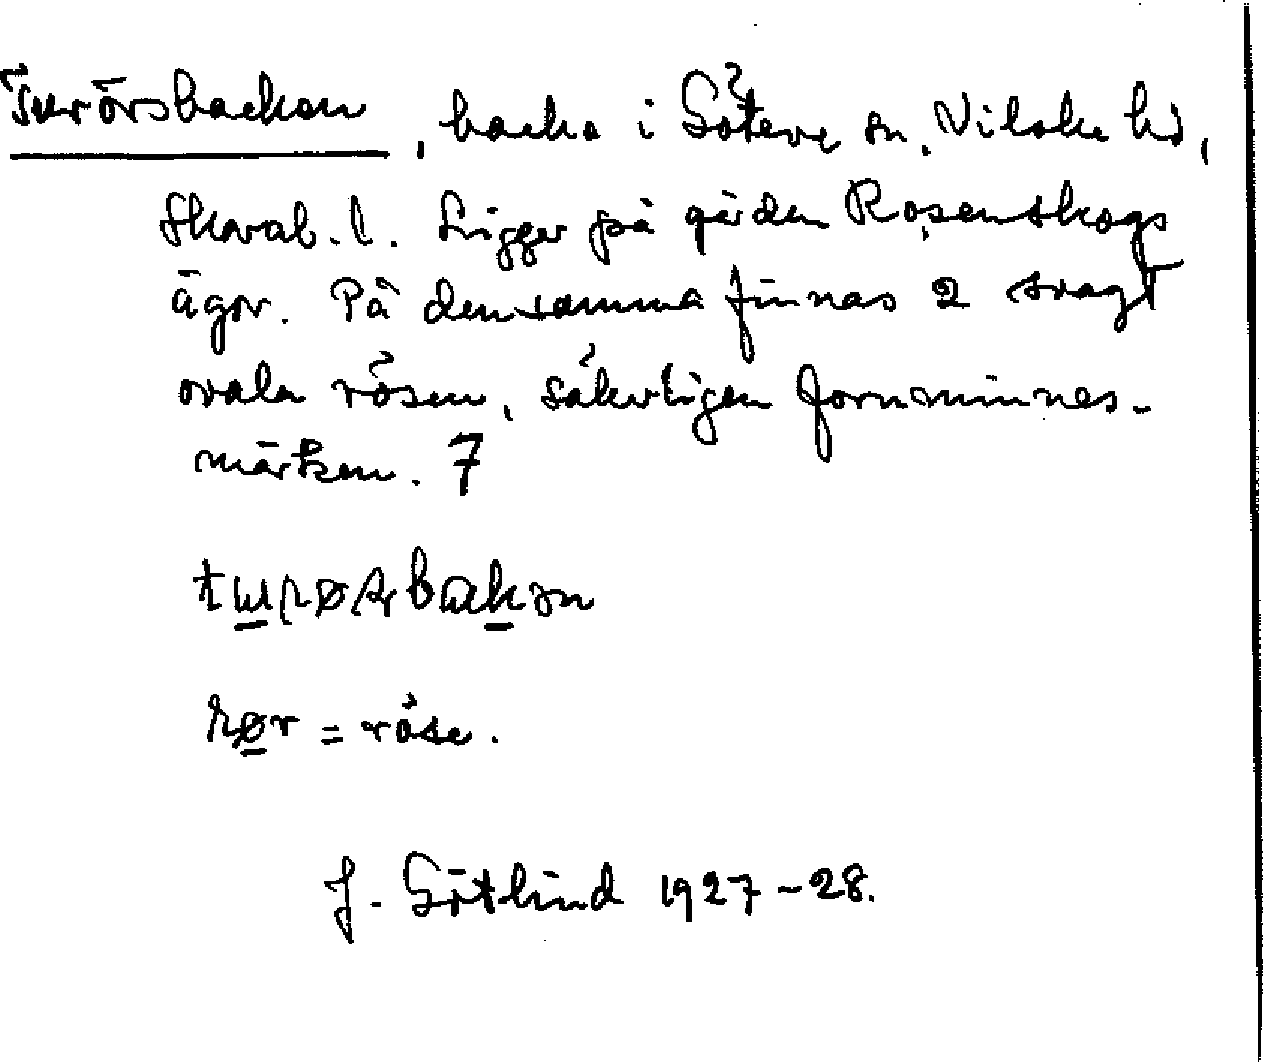 Turörsbacken, backa i Göteve sn. Vilske hd,
Skarab. l. Ligger på gården Rosenskogs
ägor. På densamma finnas 2 svagt
ovala rösen, säkerligen fornminnes-
märken. 7
rør = röse.
J. Götlind 1927-28.